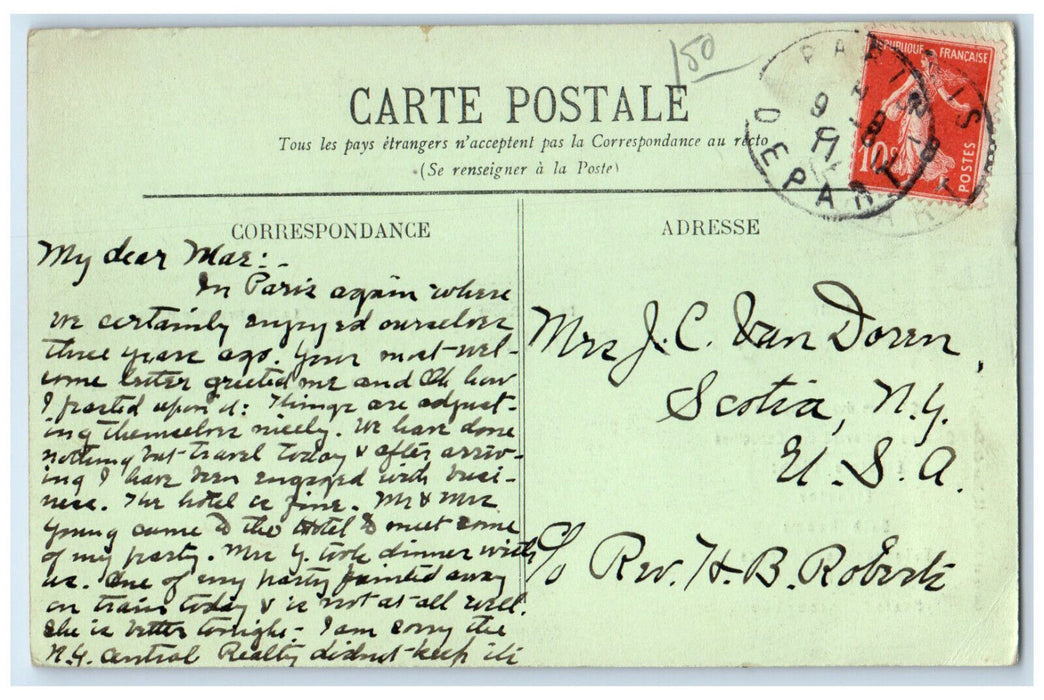 150
CARTE POSTALE
Tous les pays étrangers n'acceptent pas la Correspondance au recto
(Se renseigner à la Poste)
RÉPUBLIQUE FRANÇAISE
10c
POSTES
PARIS
DEPART
CORRESPONDANCE
My dear Mae:-
In Paris again where
we certainly enjoyed ourselves
three years ago. Your most wel-
come letter greeted me and Oh how
I feasted upon it: Things are adjust-
ing themselves nicely. We have done
nothing but travel today & after arriv-
ing I have been engaged with busi-
ness. The hotel is fine. Mr & Mrs
Young came to the Hotel to meet some
of my party. Mrs Y. took dinner with
us. One of my party fainted away
on train today & is not at all well.
She is better tonight - I am sorry the
N.Y. Central Realty didnot keep its
ADRESSE
Mrs J. C. Van Doren,
Scotia, N.Y.
U. S. A.
c/o Rev. H. B. Roberts